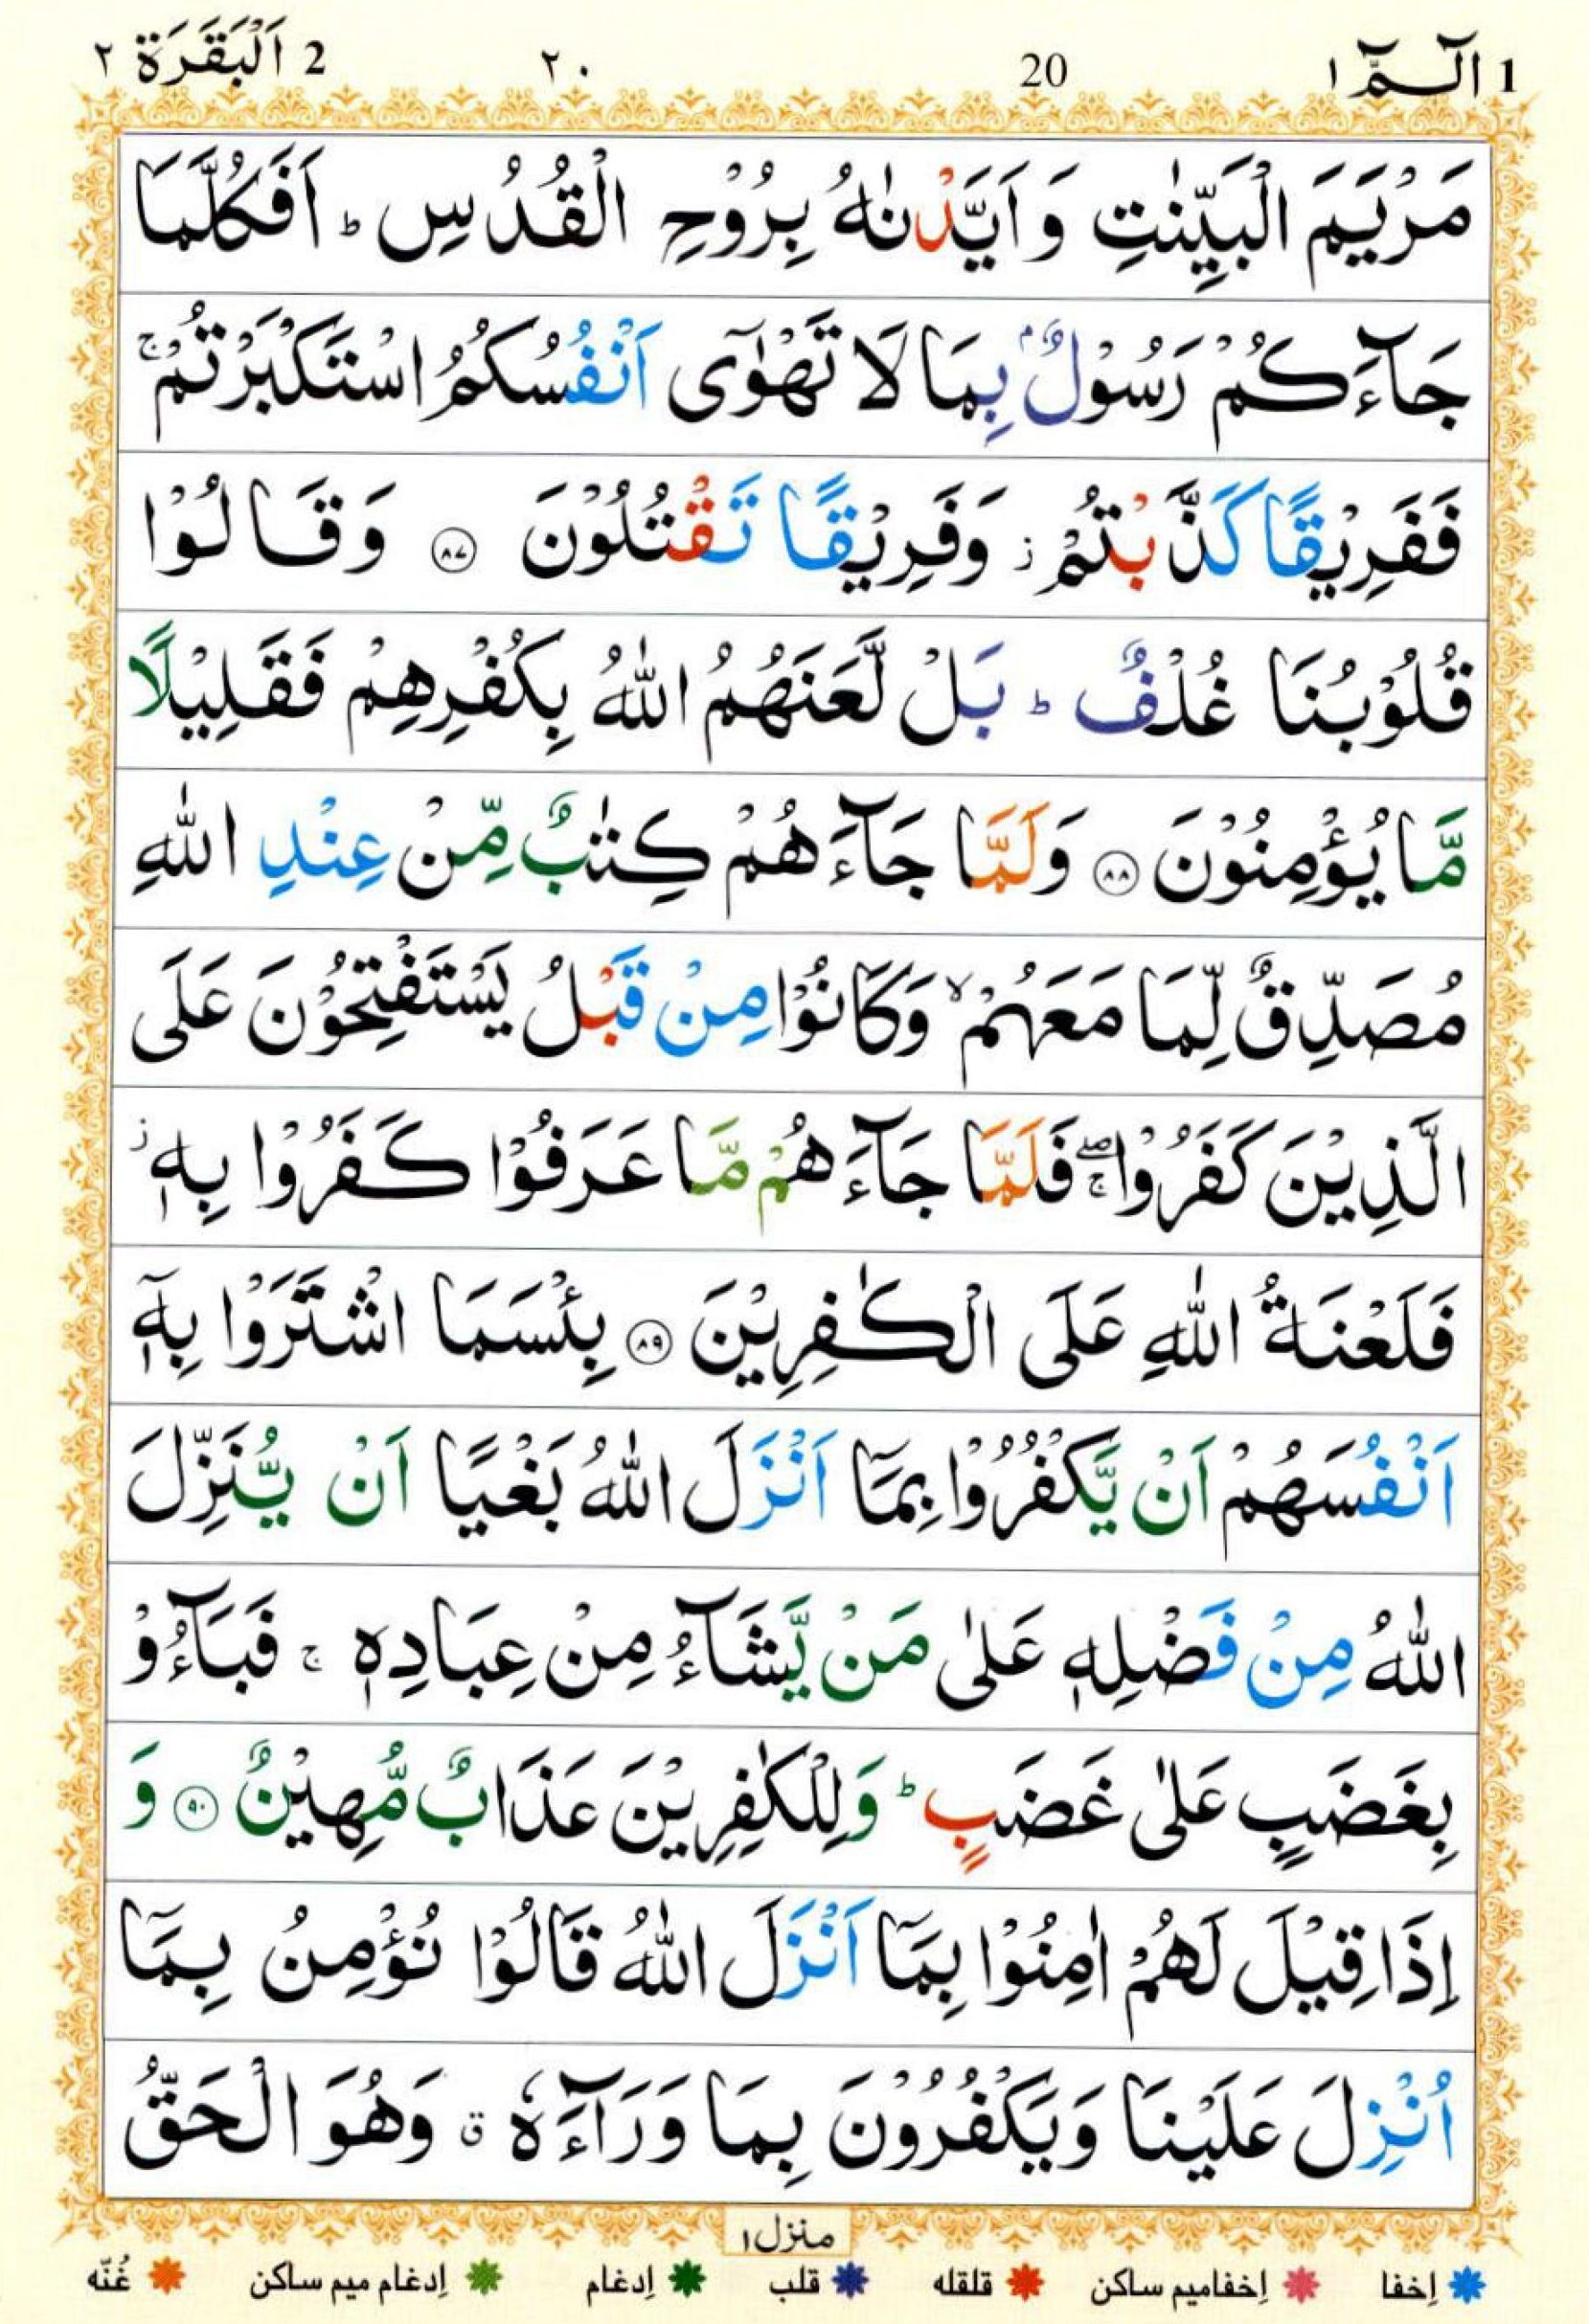 1 الٓـمّٓ ١ 20 ٢٠ 2 اَلْبَقَرَة ٢
مَرْيَمَ الْبَيِّنٰتِ وَ اَيَّدْنٰهُ بِرُوْحِ الْقُدُسِ ؕ اَفَكُلَّمَا
جَآءَكُمْ رَسُوْلٌۢ بِمَا لَا تَهْوٰٓى اَنْفُسُكُمُ اسْتَكْبَرْتُمْ ۚ
فَفَرِيْقًا كَذَّبْتُمْ ؗ وَفَرِيْقًا تَقْتُلُوْنَ ﴿٨٧﴾ وَقَالُوْا
قُلُوْبُنَا غُلْفٌ ؕ بَلْ لَّعَنَهُمُ اللّٰهُ بِكُفْرِهِمْ فَقَلِيْلًا
مَّا يُؤْمِنُوْنَ ﴿٨٨﴾ وَلَمَّا جَآءَهُمْ كِتٰبٌ مِّنْ عِنْدِ اللّٰهِ
مُصَدِّقٌ لِّمَا مَعَهُمْ ۙ وَكَانُوْا مِنْ قَبْلُ يَسْتَفْتِحُوْنَ عَلَى
الَّذِيْنَ كَفَرُوْا ۖۚ فَلَمَّا جَآءَهُمْ مَّا عَرَفُوْا كَفَرُوْا بِهٖ ؗ
فَلَعْنَةُ اللّٰهِ عَلَى الْكٰفِرِيْنَ ﴿٨٩﴾ بِئْسَمَا اشْتَرَوْا بِهٖۤ
اَنْفُسَهُمْ اَنْ يَّكْفُرُوْا بِمَآ اَنْزَلَ اللّٰهُ بَغْيًا اَنْ يُّنَزِّلَ
اللّٰهُ مِنْ فَضْلِهٖ عَلٰى مَنْ يَّشَآءُ مِنْ عِبَادِهٖ ۚ فَبَآءُوْ
بِغَضَبٍ عَلٰى غَضَبٍ ؕ وَلِلْكٰفِرِيْنَ عَذَابٌ مُّهِيْنٌ ﴿٩٠﴾ وَ
اِذَا قِيْلَ لَهُمْ اٰمِنُوْا بِمَآ اَنْزَلَ اللّٰهُ قَالُوْا نُؤْمِنُ بِمَآ
اُنْزِلَ عَلَيْنَا وَيَكْفُرُوْنَ بِمَا وَرَآءَهٗ ۗ وَهُوَ الْحَقُّ
منزل ١
اِخفا اِخفامیم ساکن قلقله قلب اِدغام اِدغام میم ساکن غُنّه